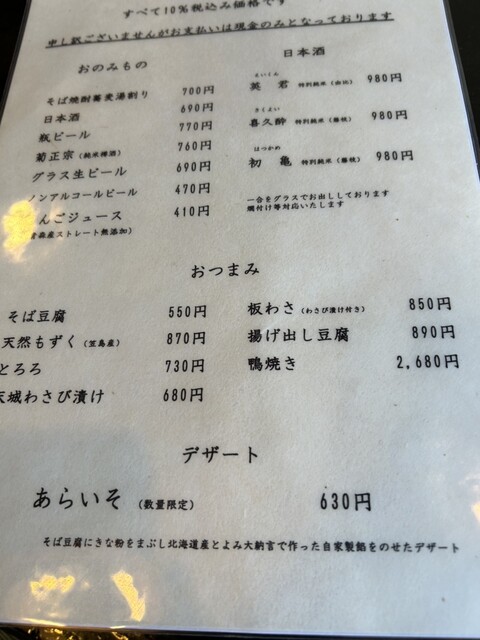 すべて10%税込み価格です
申し訳ございませんがお支払いは現金のみとなっております
おのみもの
そば焼酎蕎麦湯割り 700円
日本酒 690円
瓶ビール 770円
菊正宗（純米樽酒） 760円
グラス生ビール 690円
ノンアルコールビール 470円
んごジュース 410円
森産ストレート無添加）
日本酒
えいくん
英君 特別純米（由比） 980円
きくよい
喜久酔 特別純米（藤枝） 980円
はつかめ
初亀 特別純米（藤枝） 980円
一合をグラスでお出ししております
燗付け等対応いたします
おつまみ
そば豆腐 550円
天然もずく（笠島産） 870円
とろろ 730円
天城わさび漬け 680円
板わさ（わさび漬け付き） 850円
揚げ出し豆腐 890円
鴨焼き 2,680円
デザート
あらいそ（数量限定） 630円
そば豆腐にきな粉をまぶし北海道産とよみ大納言で作った自家製餡をのせたデザート